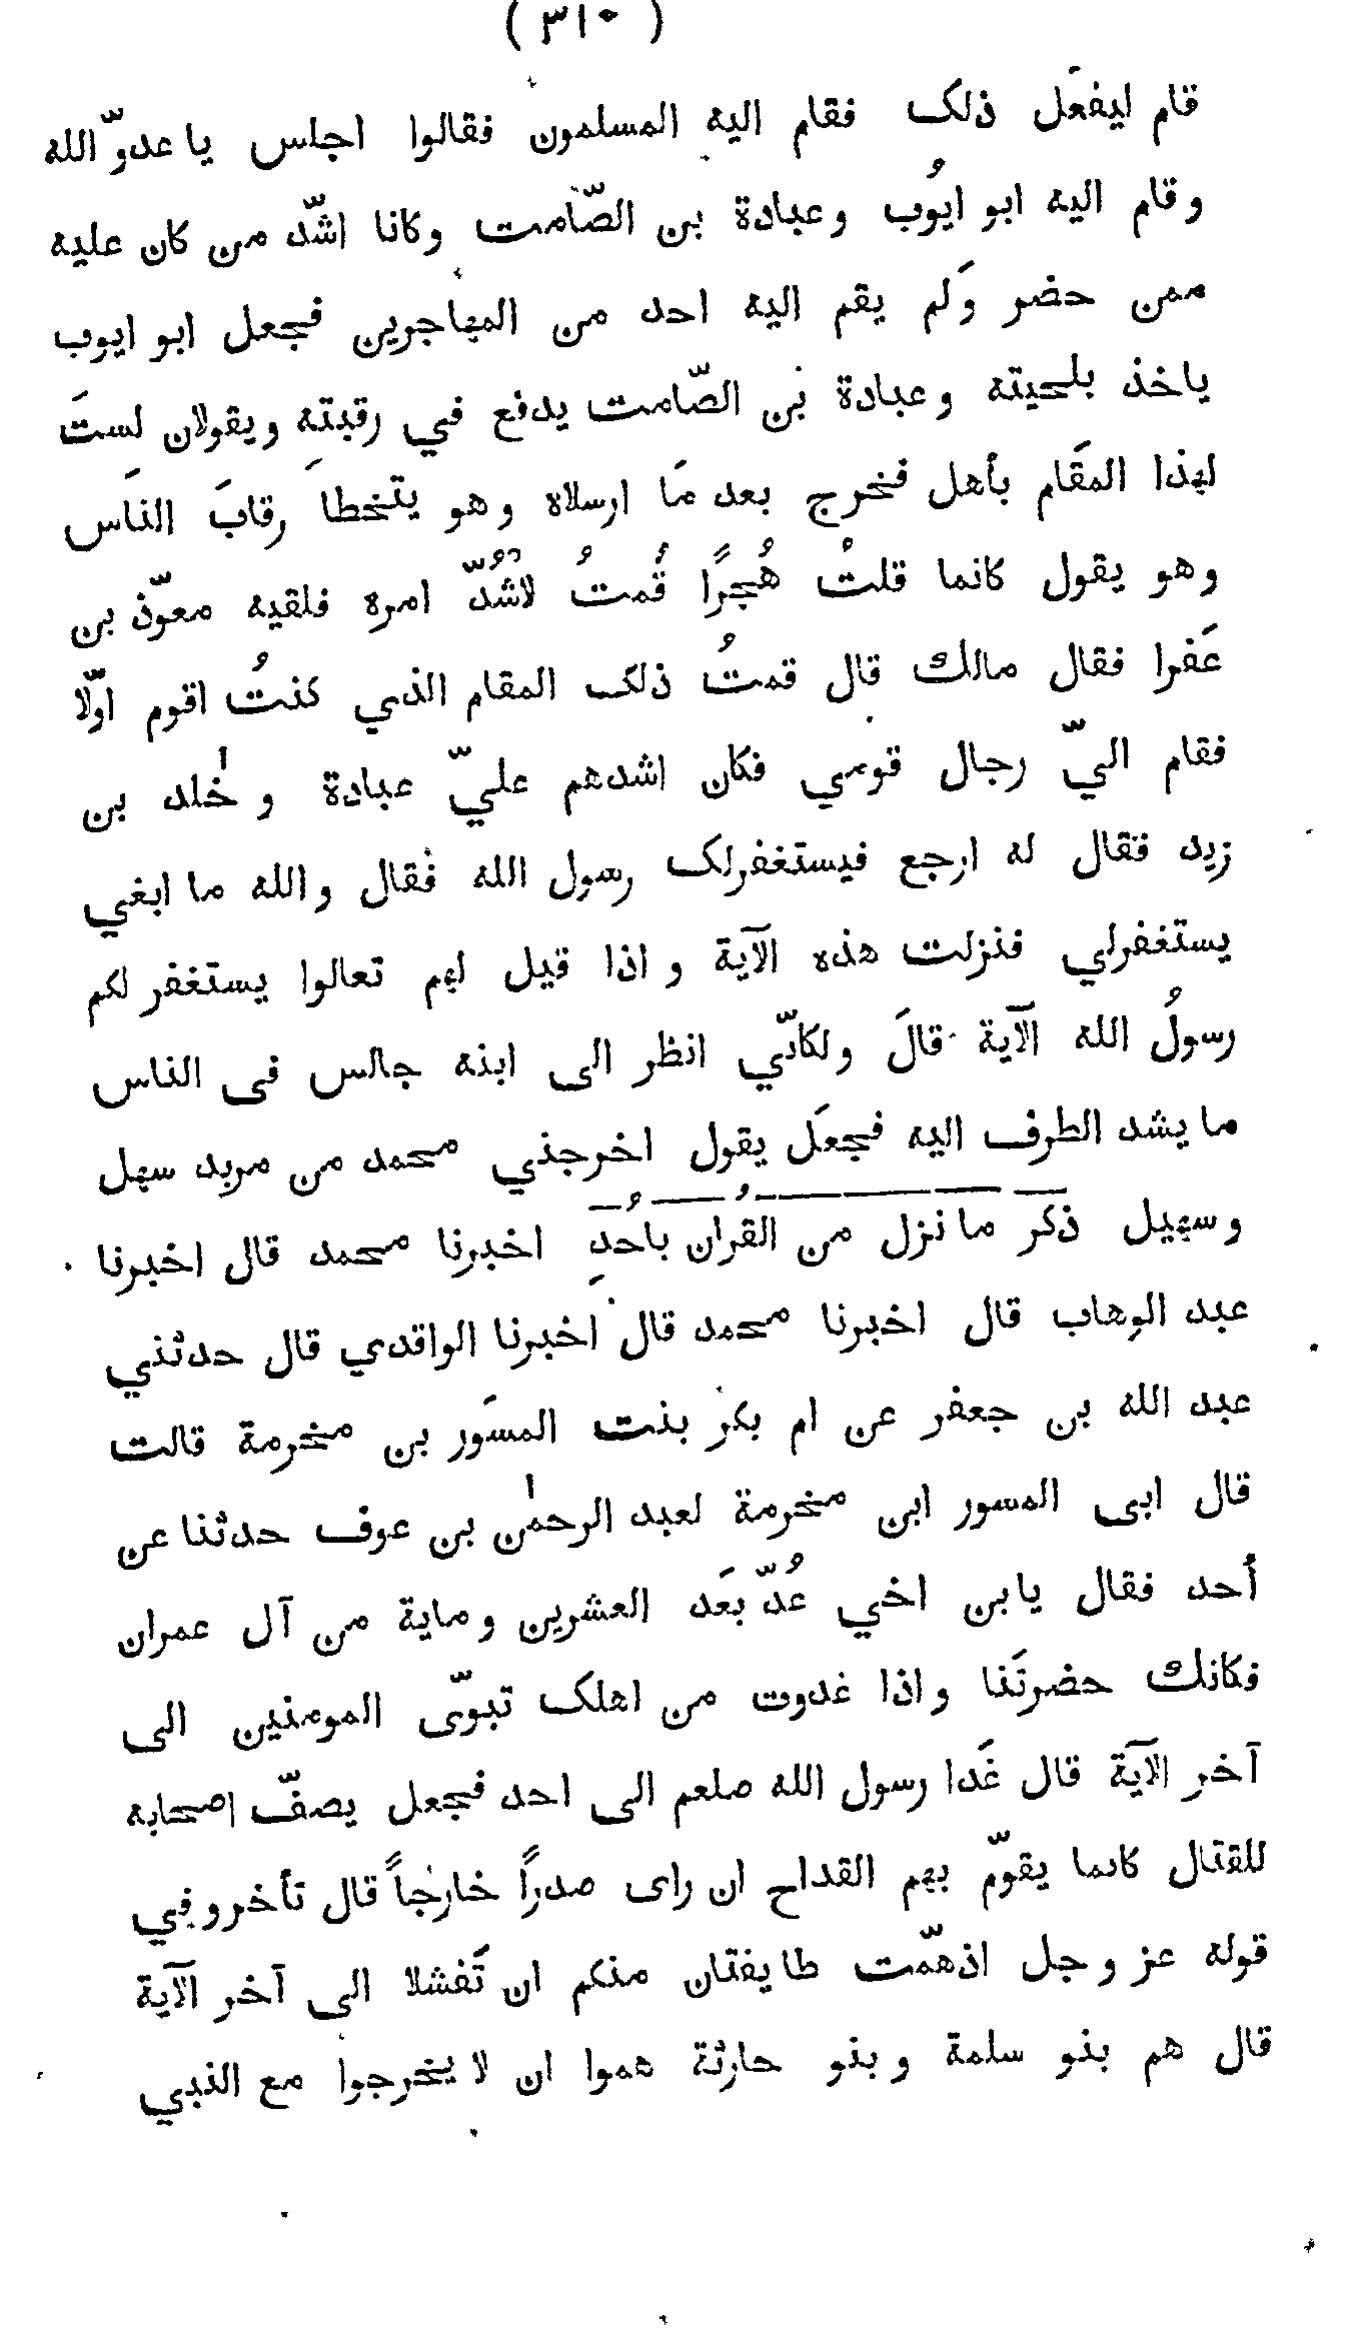 ( ٣١٠ )
قام ليفعَل ذلك فقام اليه المسلمون فقالوا اجلس يا عدوّ الله
وقام اليه ابو ايُوب وعبادة بن الصّامت وكانا اشّد من كان عليه
ممن حضر وَلم يقم اليه احد من المهاجرين فجعل ابو ايوب
ياخذ بلحيته وعبادة بن الصّامت يدفع في رقبته ويقولان لستَ
لهذا المقَام بأهل فخرج بعد مَا ارسلاه وهو يتخطا رقابَ الناَس
وهو يقول كانما قلتُ هُجرًا قُمتُ لاُشُدّ امره فلقيه معوّذ بن
عَفرا فقال مالك قال قمتُ ذلك المقام الذي كنتُ اقوم اولّا
فقام اليّ رجال قومي فكان اشدهم عليّ عبادة و خٰلد بن
زيد فقال له ارجع فيستغفرلك رسول الله فقال والله ما ابغي
يستغفرلي فنزلت هذه الآية واذا قيل لهم تعالوا يستغفر لكم
رسولُ الله الآية قالَ ولكانّي انظر الى ابنه جالس فى الناس
ما يشد الطرف اليه فجعَل يقول اخرجني محمد من مربد سهل
وسهيل ذكَر ما نزل من القُران باُحُد اخبرنا محمد قال اخبرنا
عبد الوهاب قال اخبرنا محمد قال اخبرنا الواقدي قال حدثني
عبد الله بن جعفر عن ام بكر بنت المسَور بن مخرمة قالت
قال ابى المسور ابن مخرمة لعبد الرحمٰن بن عوف حدثنا عن
اُحد فقال يا بن اخي عُدّ بعَد العشرين وماية من آل عمران
فكانك حضرتَنا واذا غدوت من اهلك تبوّى المومنين الى
آخر الآية قال غَدا رسول الله صلعم الى احد فجعل يصفّ اصحابه
للقتال كانما يقوّم بهم القداح ان راى صدرًا خارجاً قال تأخر وفي
قوله عز وجل اذ همّت طايفتان منكم ان تَفشلا الى آخر الآية
قال هم بنو سلمة وبنو حارثة هموا ان لا يخرجوا مع النبي